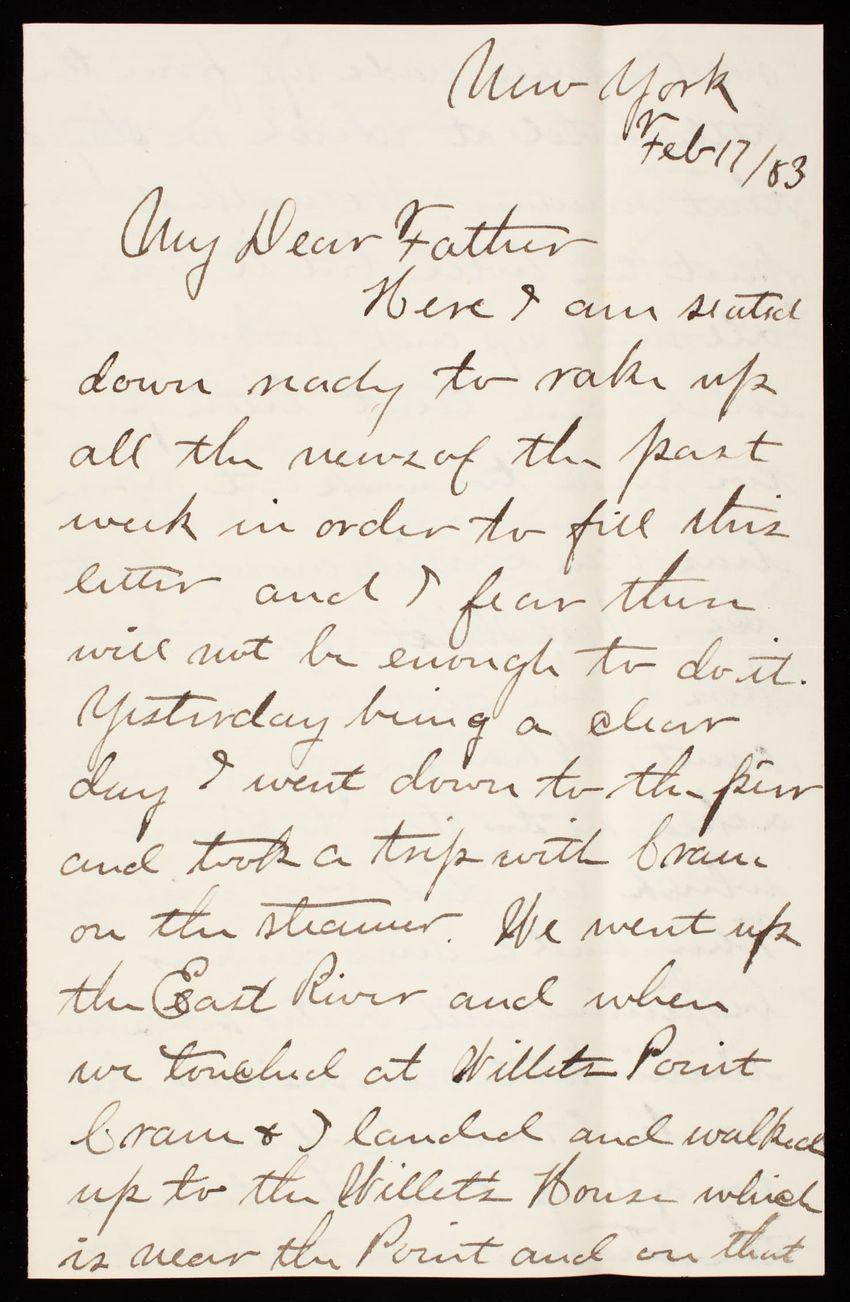 New York
Feb 17/83
My Dear Father
Here I am seated
down ready to rake up
all the news of the past
week in order to fill this
letter and I fear there
will not be enough to do it.
Yesterday being a clear
day I went down to the pier
and took a trip with Cram
on the steamer. We went up
the East River and when
we touched at Willets Point
Cram & I landed and walked
up to the Willets House which
is near the Point and on that